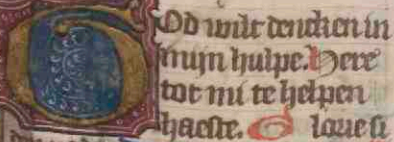 God wilt dencken in
mijn hulpe. Here
tot mi te helpen
haeste. Glorie si